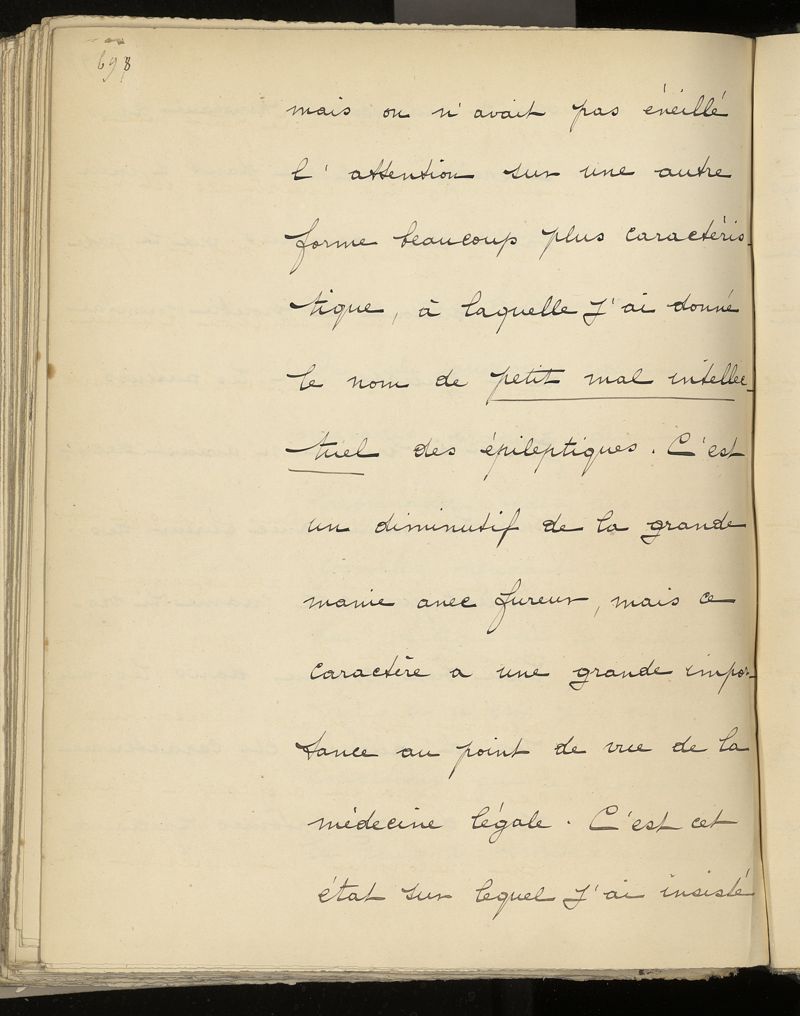 698
mais on n'avait pas éveillé
l'attention sur une autre
forme beaucoup plus caractéris-
tique, à laquelle j'ai donné
le nom de petit mal intellec-
tuel des épileptiques. C'est
un diminutif de la grande
manie avec fureur, mais ce
caractère a une grande impor-
tance au point de vue de la
médecine légale. C'est cet
état sur lequel j'ai insisté